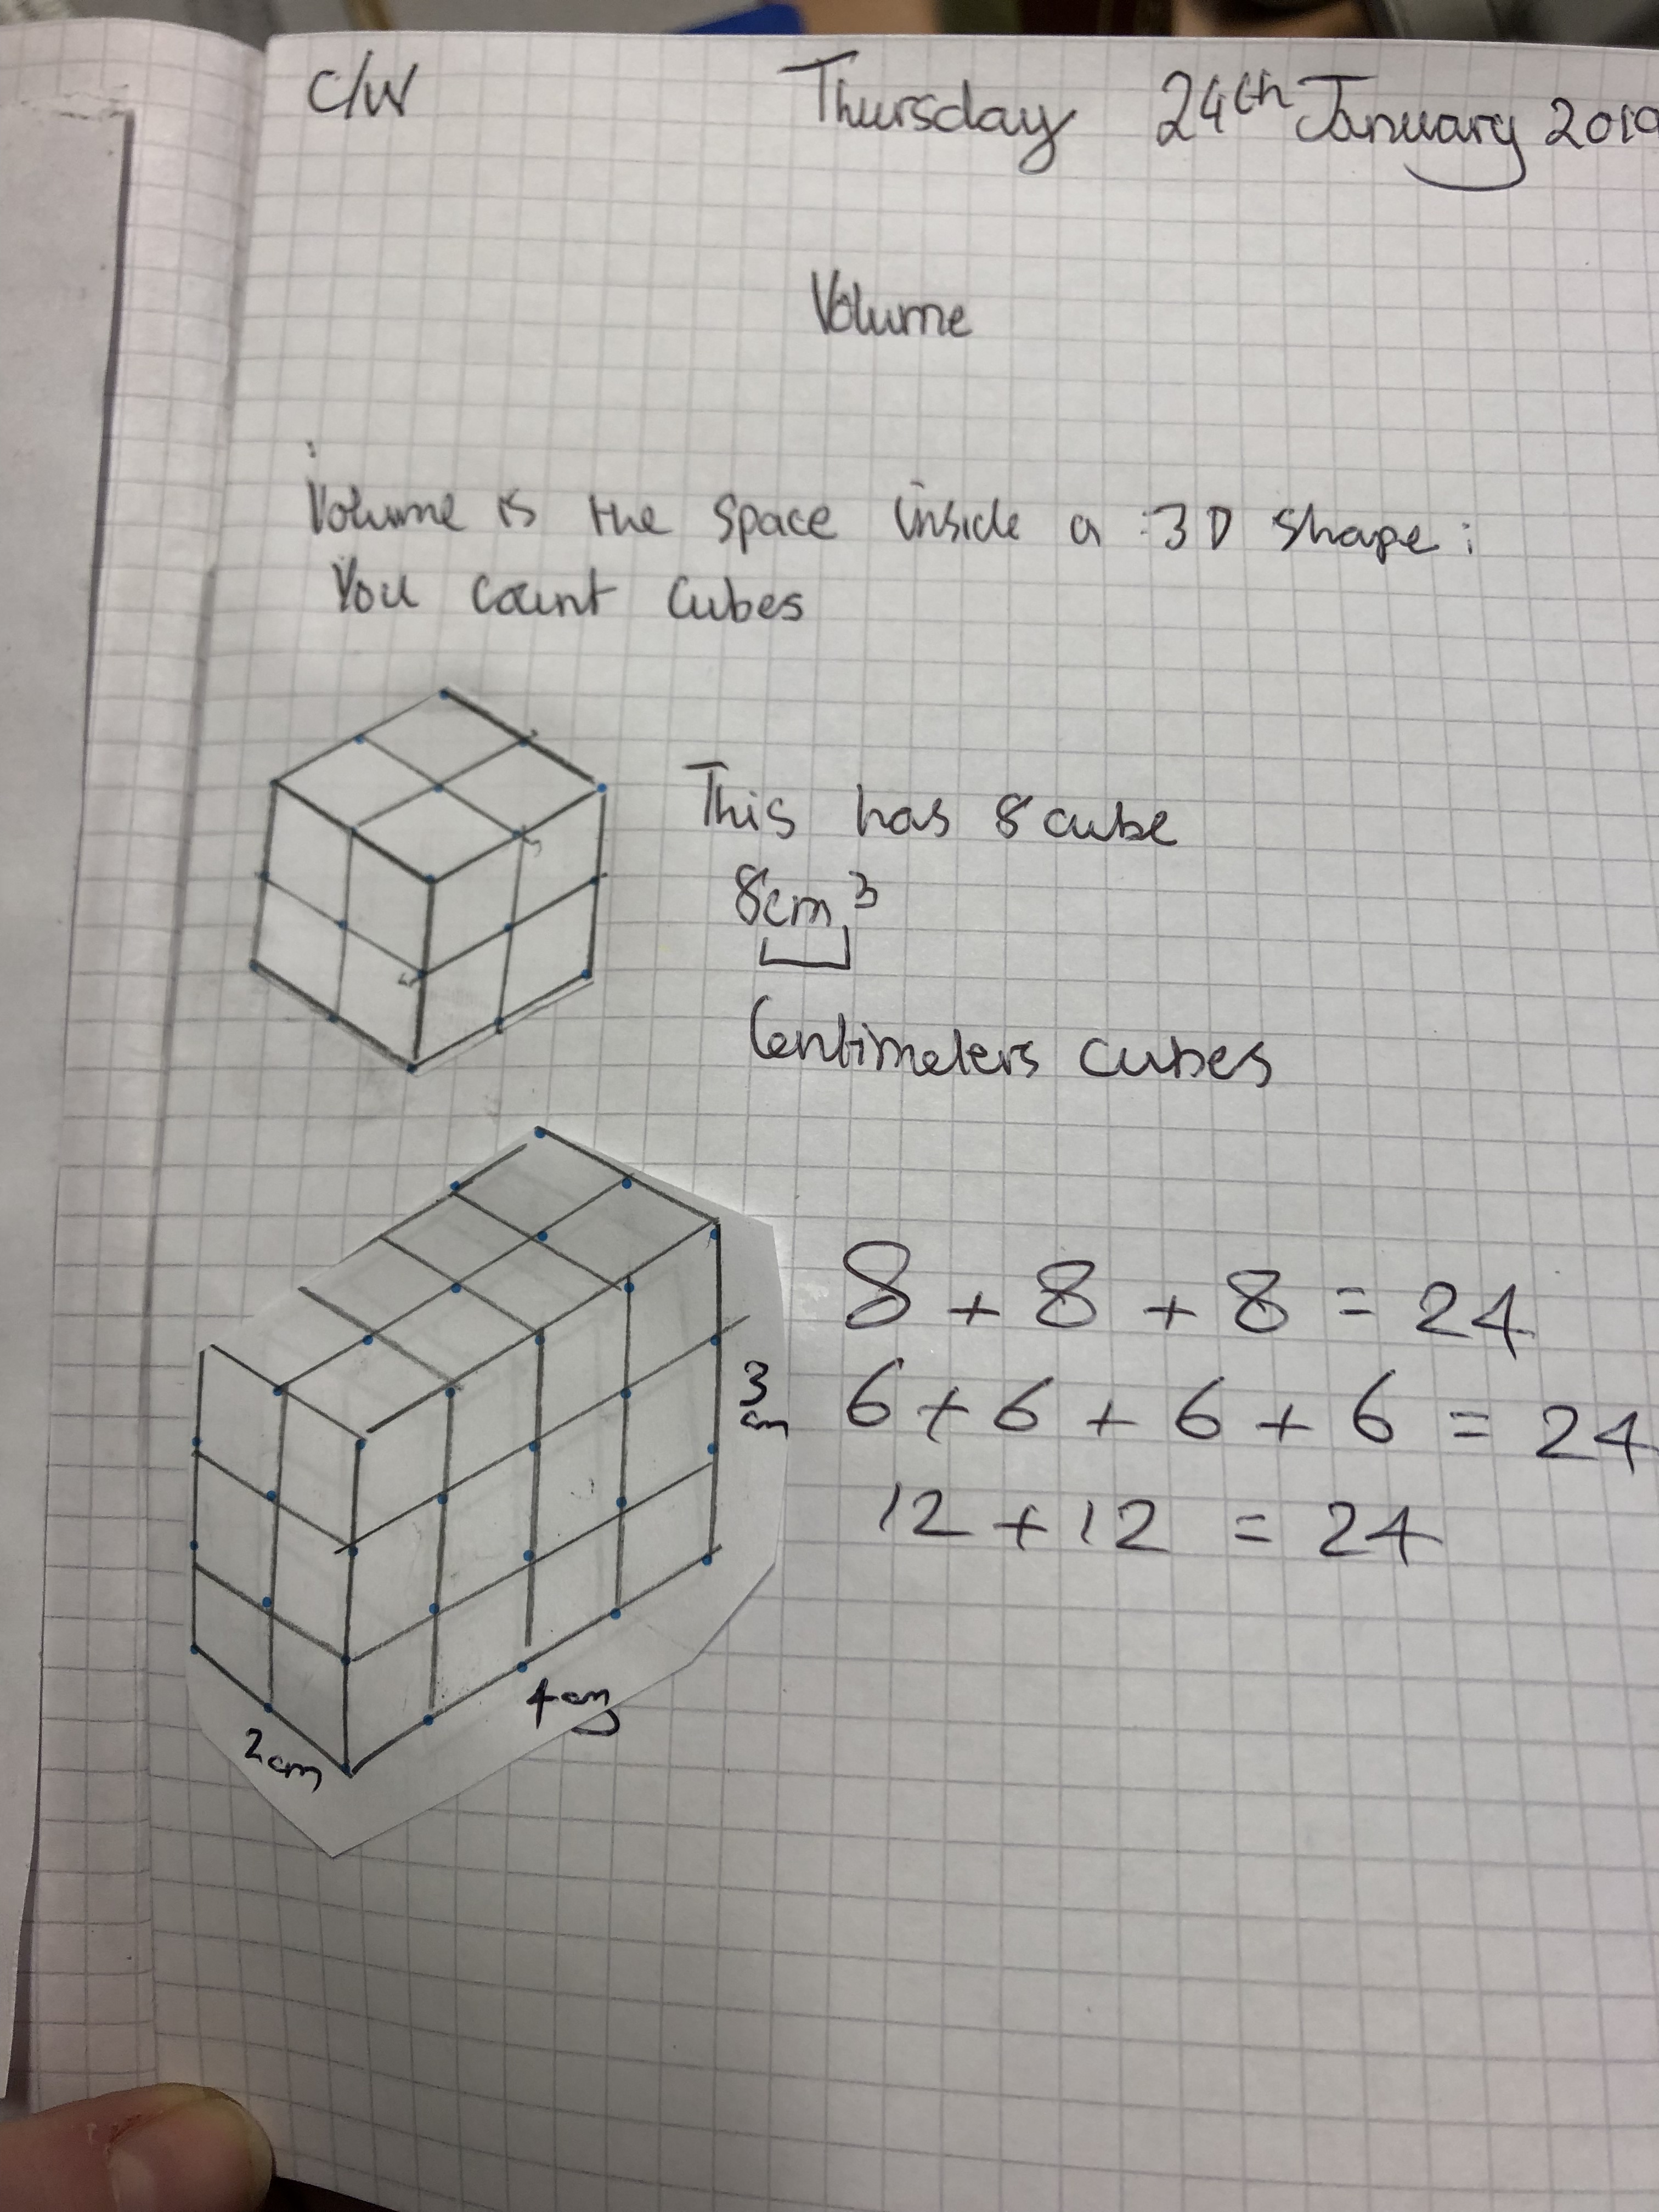 C/W Thursday 24th January 2019
Volume
Volume is the space inside a 3D shape:
You count cubes
This has 8 cube
8cm³
Centimeters cubes
8 + 8 + 8 = 24
3 cm
6 + 6 + 6 + 6 = 24
12 + 12 = 24
4cm
2cm